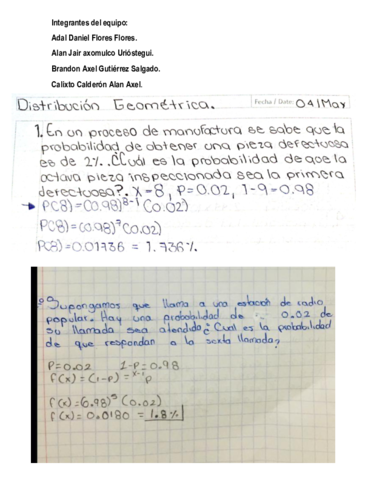 Integrantes del equipo:
Adal Daniel Flores Flores.
Alan Jair axomulco Urióstegui.
Brandon Axel Gutiérrez Salgado.
Calixto Calderón Alan Axel.
Distribución Geométrica. Fecha / Date: 04/May
1. En un proceso de manufactura se sabe que la
probabilidad de obtener una pieza defectuosa
es de 2%. ¿Cuál es la probabilidad de que la
octava pieza inspeccionada sea la primera
defectuosa?. X=8, P=0.02, 1-q=0.98
P(8)=(0.98)^8-1 (0.02)
P(8)=(0.98)^7 (0.02)
P(8)=0.01736 = 1.736%
Supongamos que llama a una estación de radio
popular. Hay una probabilidad de 0.02 de
su llamada sea atendido ¿Cual es la probabilidad
de que respondan a la sexta llamada?
P=0.02 1-p=0.98
f(x)=(1-p)^x-1 p
f(x)=(0.98)^5 (0.02)
f(x)=0.0180 = 1.8%